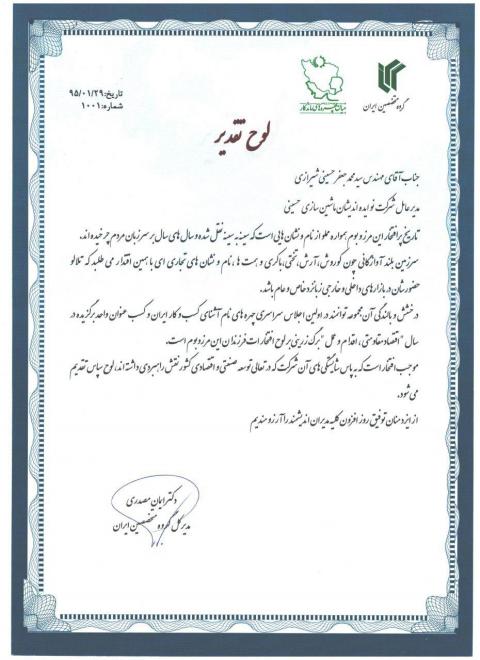 گروه متخصصین ایران
تاریخ: ۹۵/۰۱/۲۹
شماره: ۱۰۰۱
لوح تقدیر
جناب آقای مهندس سید محمد جعفر حسینی شیرازی
مدیرعامل شرکت نوایده اندیشان ماشین سازی حسینی
تاریخ پر افتخار این مرز و بوم همواره مملو از نام و نشان هایی است که سینه به سینه نقل شده و سال های سال بر سر زبان مردم چرخنده اند.
سرزمین بلند آوازگانی چون کوروش، آرش، تختی، باکری و همت ها، نام و نشان های تجاری ای با همین اقتدار می طلبد که تلالو
حضورشان در بازارهای داخلی و خارجی زبانزد خاص و عام باشد.
درخشش و بالندگی آن مجموعه توانمند در اولین اجلاس سراسری چهره های نام آشنای کسب و کار ایران و کسب عنوان واحد برگزیده در
سال "اقتصاد مقاومتی، اقدام و عمل" برگ زرینی بر لوح افتخارات فرزندان این مرز و بوم است.
موجب افتخار است که به پاس شایستگی های آن شرکت که در تعالی توسعه صنعتی و اقتصادی کشور نقش راهبردی داشته اند، لوح سپاس تقدیم
می شود.
از ایزد منان توفیق روز افزون کلیه مدیران اندیشمند را آرزومندیم
دکتر ایمان مصدری
مدیر کل گروه متخصصین ایران